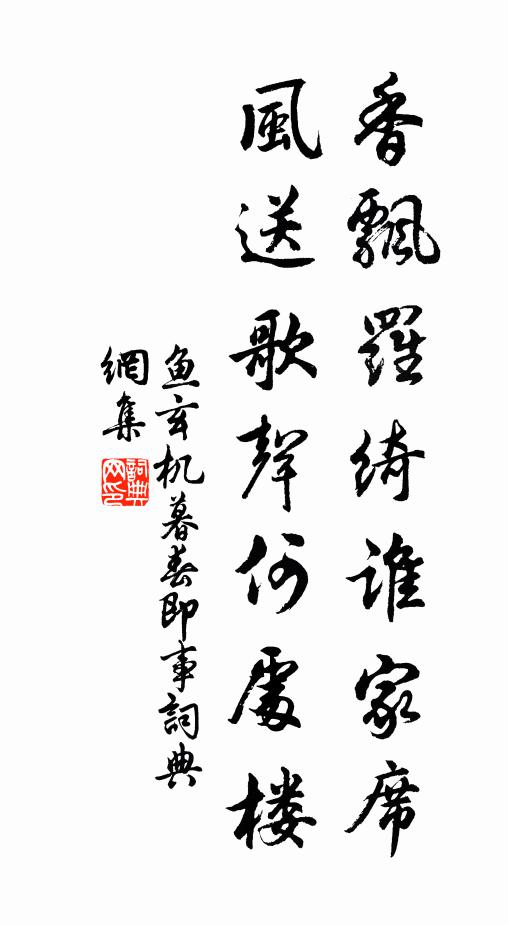 香飄羅綺誰家席
風送歌聲何處楼
鱼玄机暮春即事詞典
網集
詞典网印